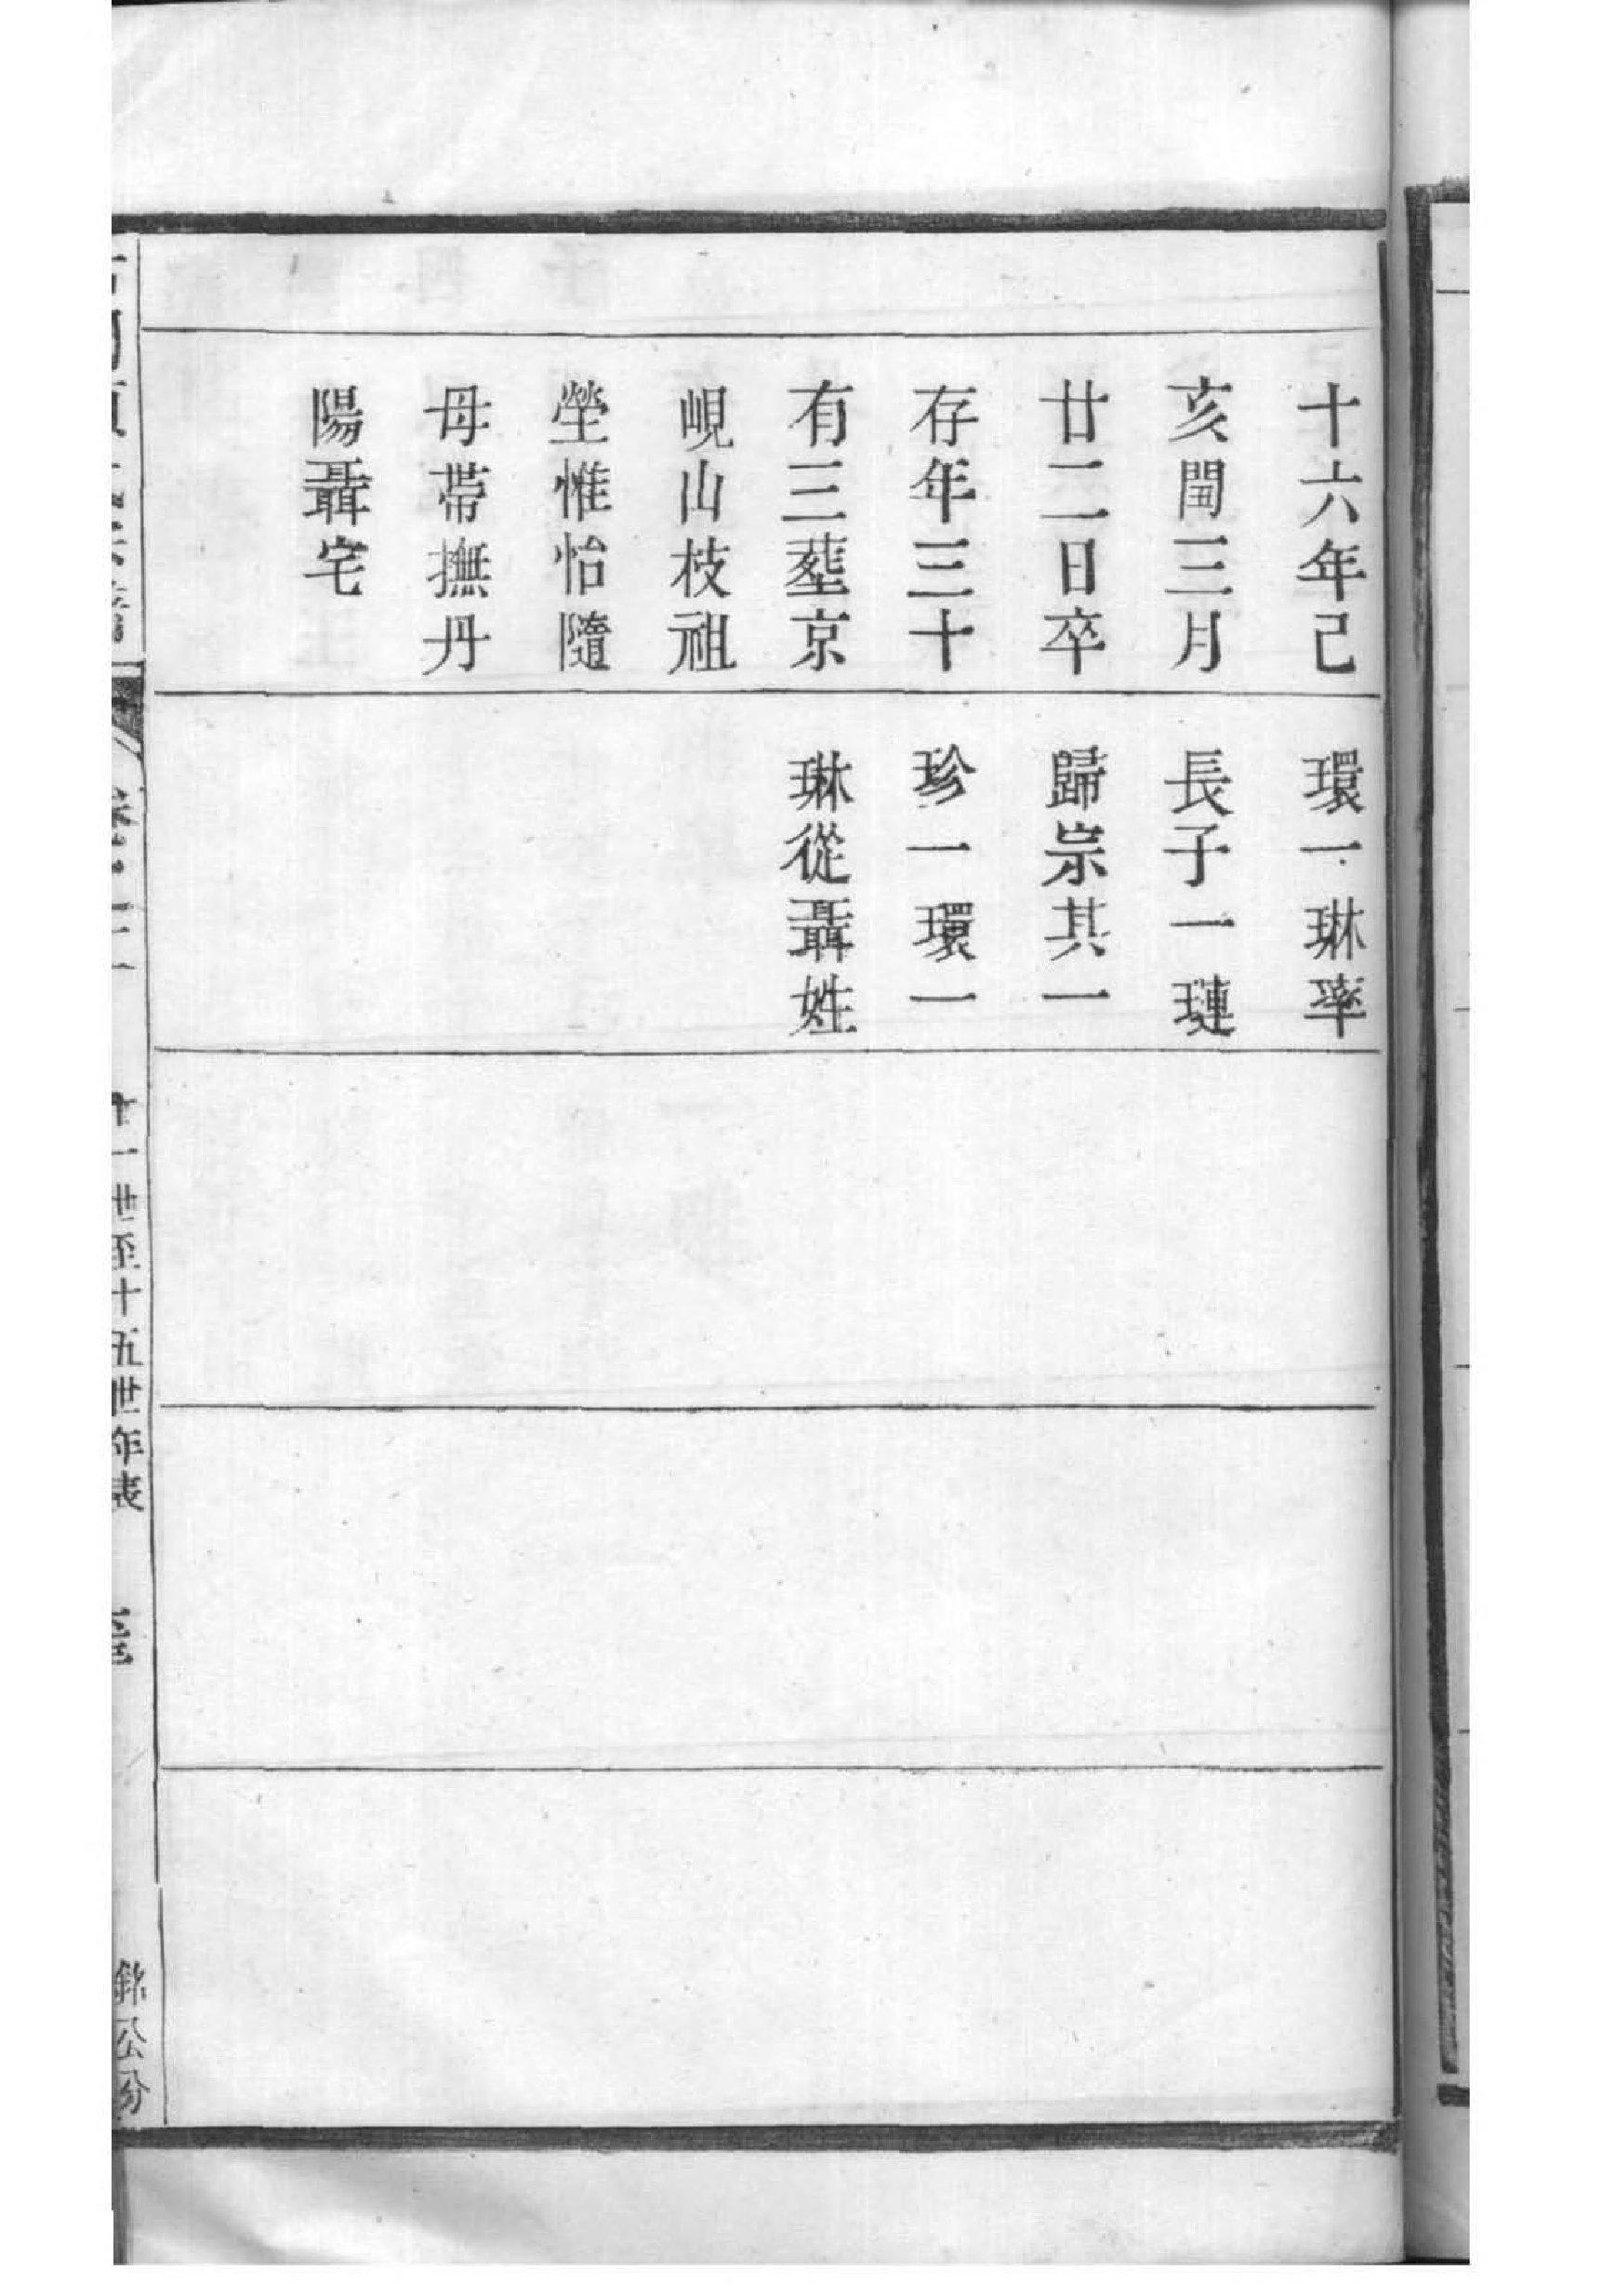 十六年己
亥閏三月
廿二日卒
存年三十
有三塟京
峴山枝祖
塋惟怡隨
母帶撫丹
陽聶宅
環一琳率
長子一璉
歸宗其一
珍一環一
琳從聶姓
十一世至十五世年表
銘公分